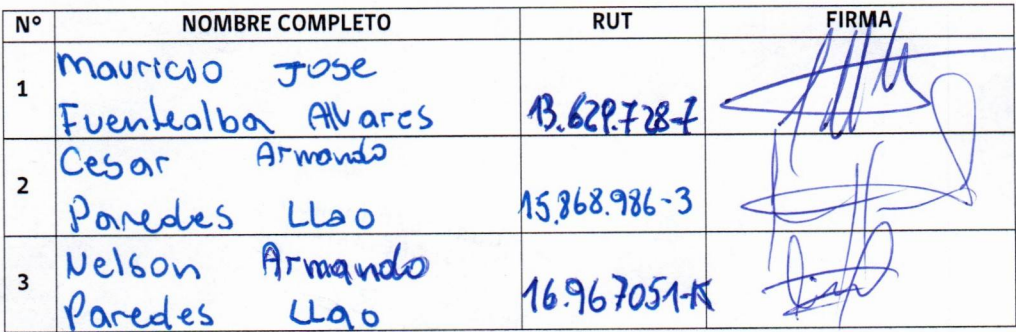 Nº NOMBRE COMPLETO RUT FIRMA
1 Mauricio Jose
Fuentealba Alvares 13.629.728-7
2 Cesar Armando
Paredes Llao 15.868.986-3
3 Nelson Armando
Paredes Llao 16.967051-K